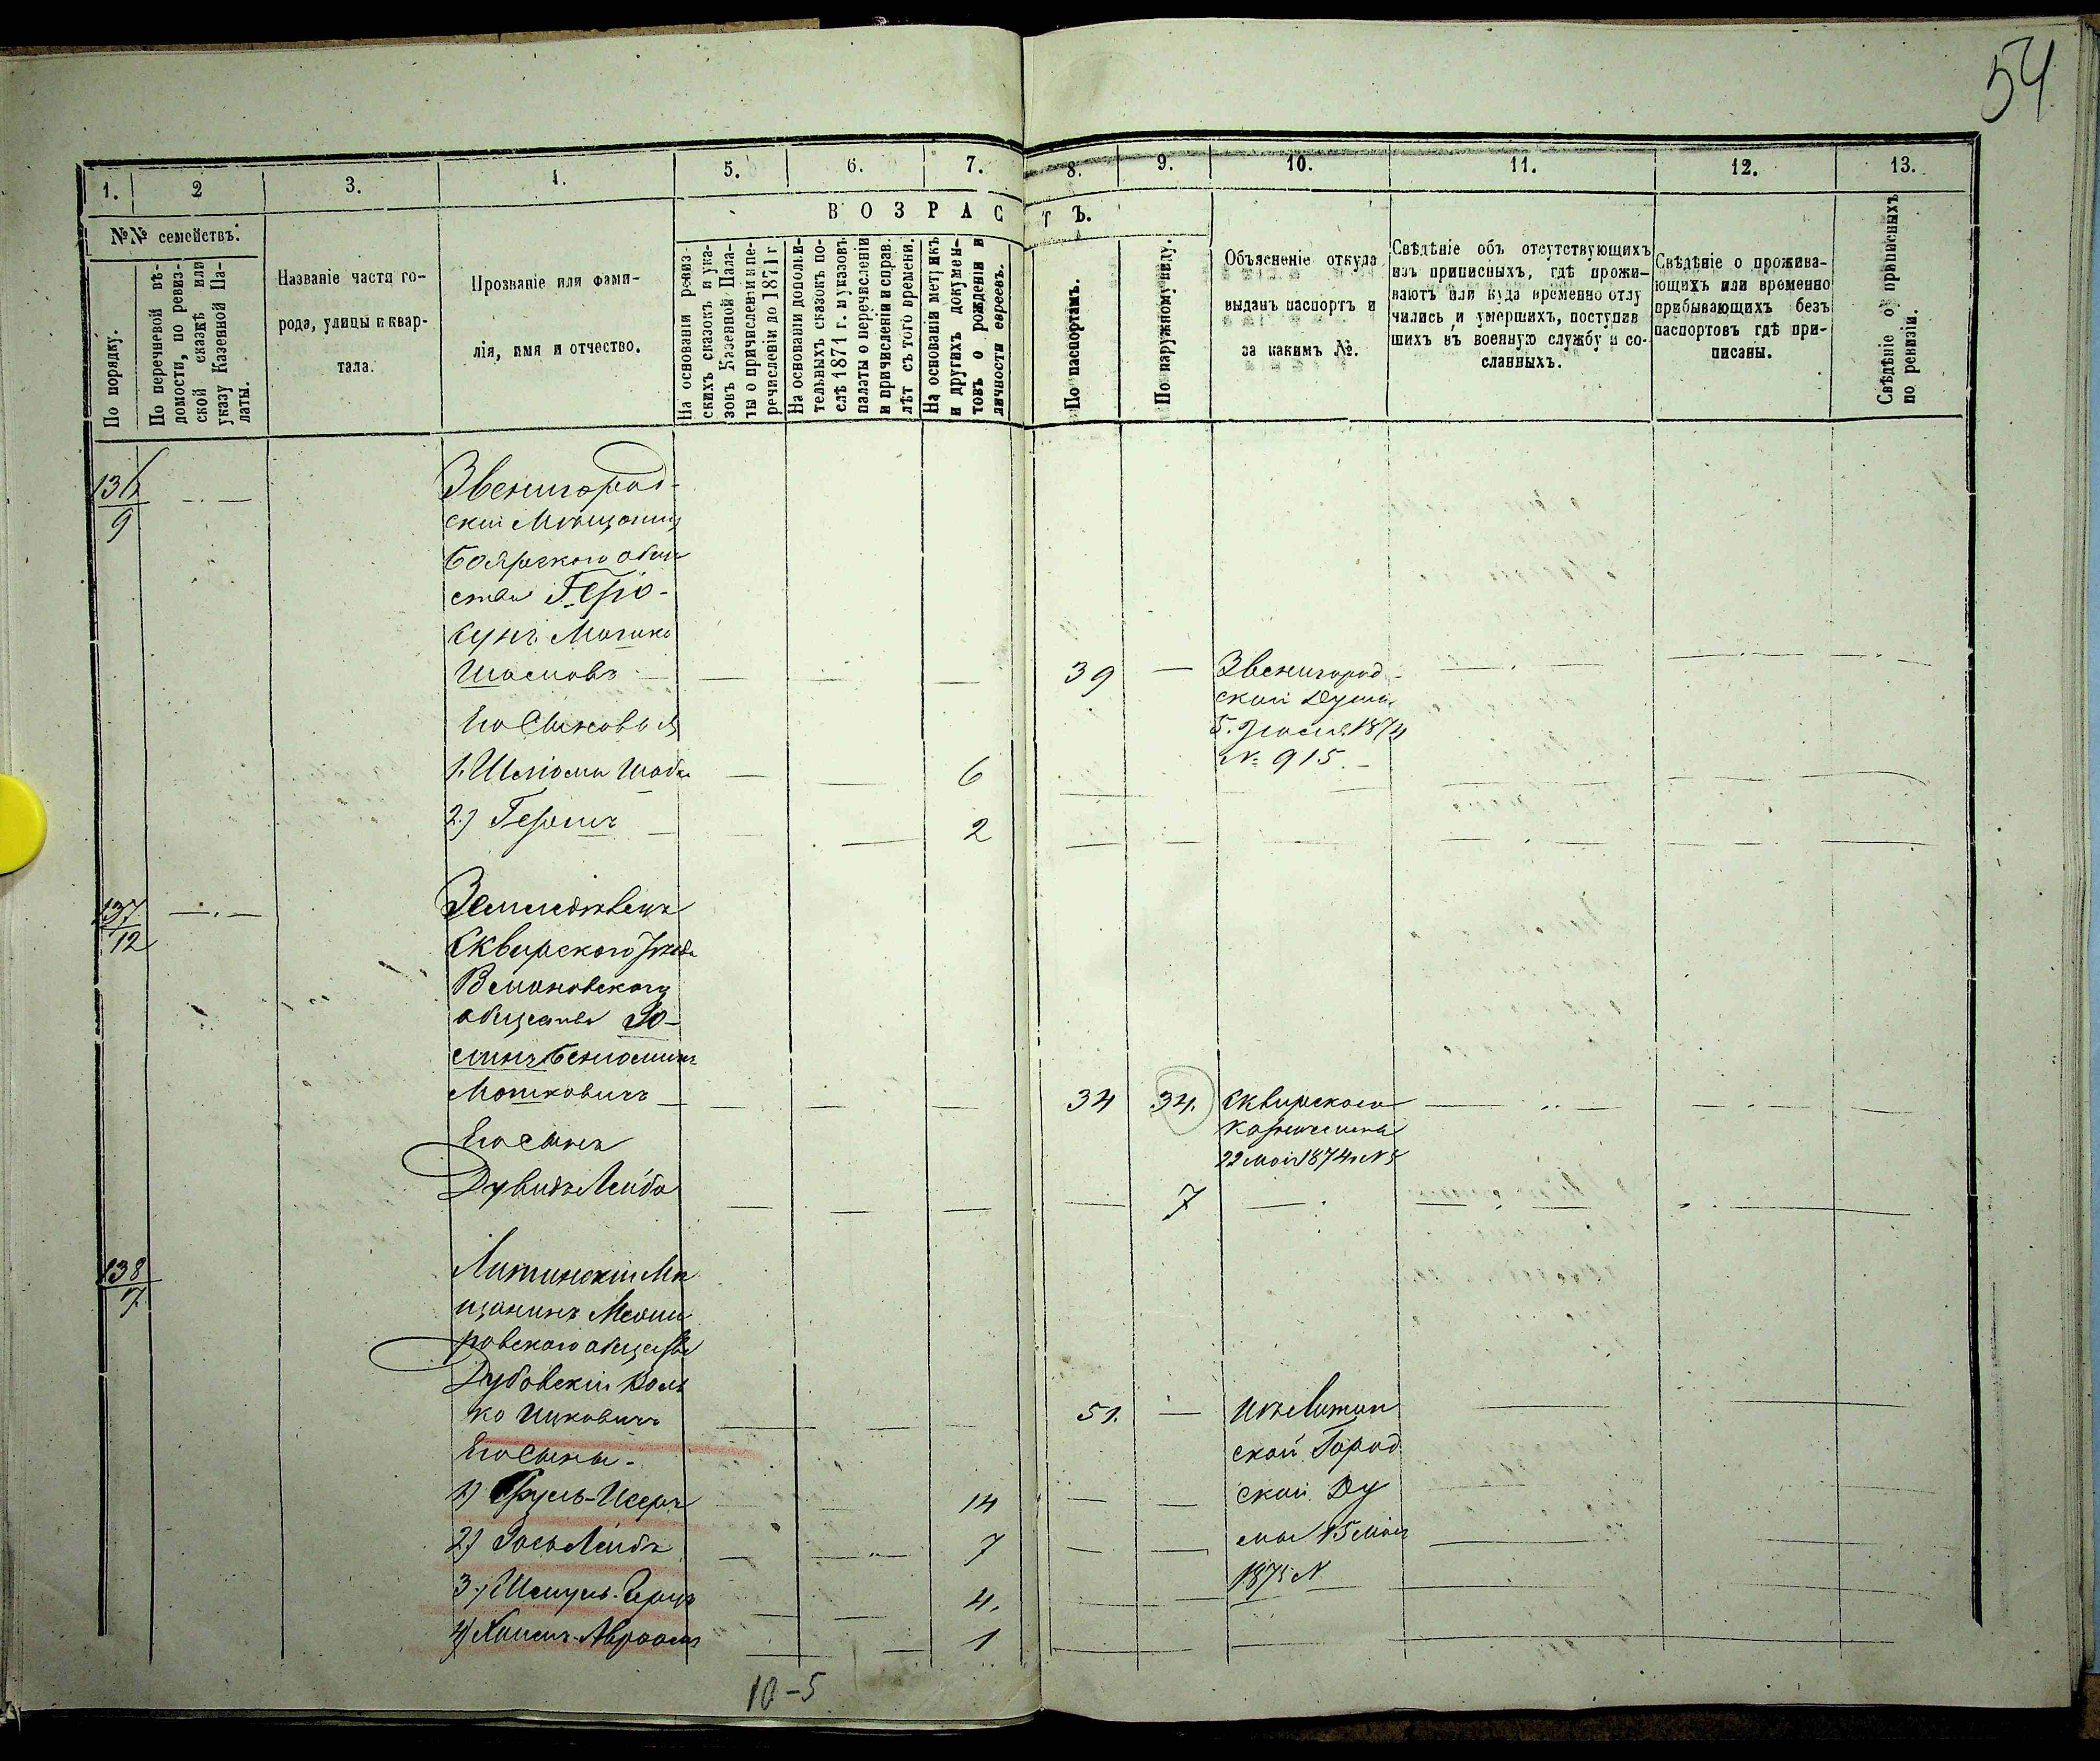 54
1. 2 3. 4. 5. 6. 7. 8. 9. 10. 11. 12. 13.
№№ семействъ.
По порядку.
По перечневой вѣ-
домости, по ревиз-
ской сказкѣ или
указу Казенной Па-
латы.
Названіе части го-
рода, улицы и квар-
тала.
Прозваніе или фами-
лія, имя и отчество.
ВОЗРАСТЪ.
На основаніи ревиз-
скихъ сказокъ и ука-
зовъ Казенной Пала-
ты о причисленіи и пе-
речисленіи до 1871 г
На основаніи дополни-
тельныхъ сказокъ по-
слѣ 1871 г. и указовъ
палаты о перечисленіи
и причисленіи и справ.
лѣт съ того времени.
На основаніи метрикъ
и другихъ докумен-
товъ о рожденіи и
личности евреевъ.
По паспортамъ.
По наружному виду.
Объясненіе откуда
выданъ паспортъ и
за какимъ №.
Свѣдѣніе объ отсутствующихъ
изъ приписныхъ, гдѣ прожи-
ваютъ или куда временно отлу
чились и умершихъ, поступив
шихъ въ военную службу и со-
сланныхъ.
Свѣдѣніе о прожива-
ющихъ или временно
прибывающихъ безъ
паспортовъ гдѣ при-
писаны.
Свѣдѣніе о приписныхъ
по ревизіи.
136
9
Звенигород-
скій Мѣщанинъ
Боярского обще
ства
Мошко
39 — Звенигород-
ской Думы
5. 1874
№ 915.
Его Сыновья
1. Шлiома 6
2.) Гершъ 2
137
12
Земледѣлецъ
Сквирского Уѣзда
общества
Мошковичъ — 34 34. Сквирского
Казначейства
22 мая 1874 № 5
Его сынъ
Дувидъ Лейба 7
138
7
Литинскій Мѣ
щанинъ Межи
ровского общества
Дубовскій Воль
ко Ицковичъ 51. — Изъ Литин
ской Город
ской Ду
мы 15 мая
1875 №
Его Сыны-
1) Сруль-Исеръ 14
2) Іось Лейба 7
3.) Шмуль-Герцъ 4.
4) Хаимъ-Авраамъ 1
10-5